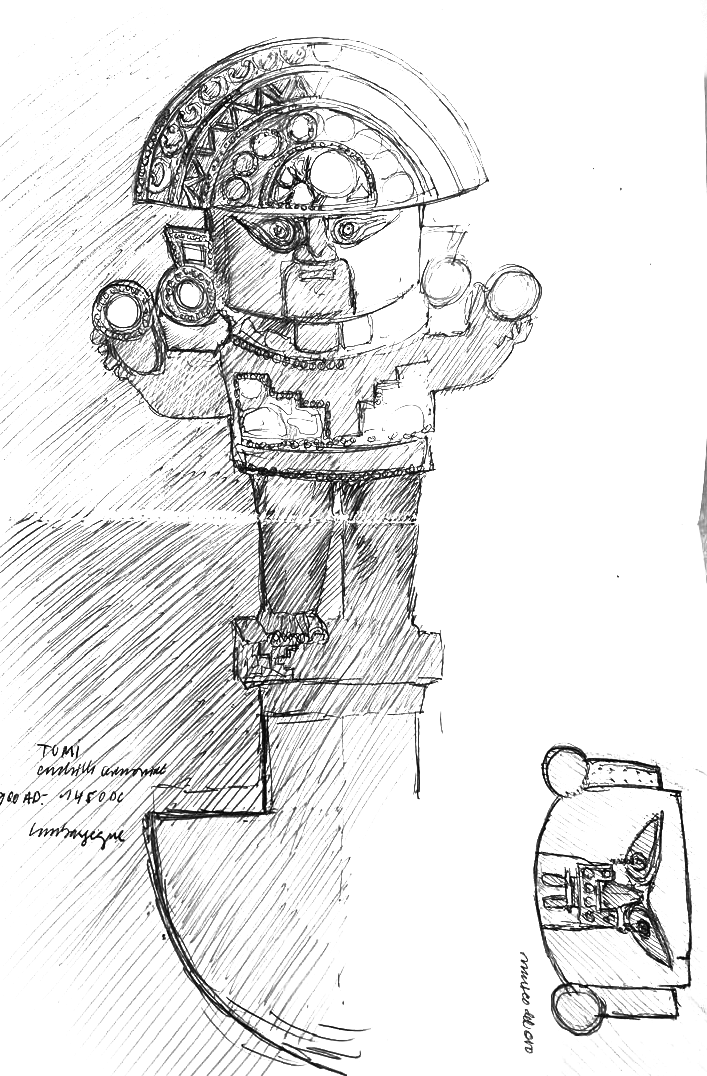 TUMI
cuchillo ceremonial
900 AD - 1450 DC
Lambayeque
museo del oro